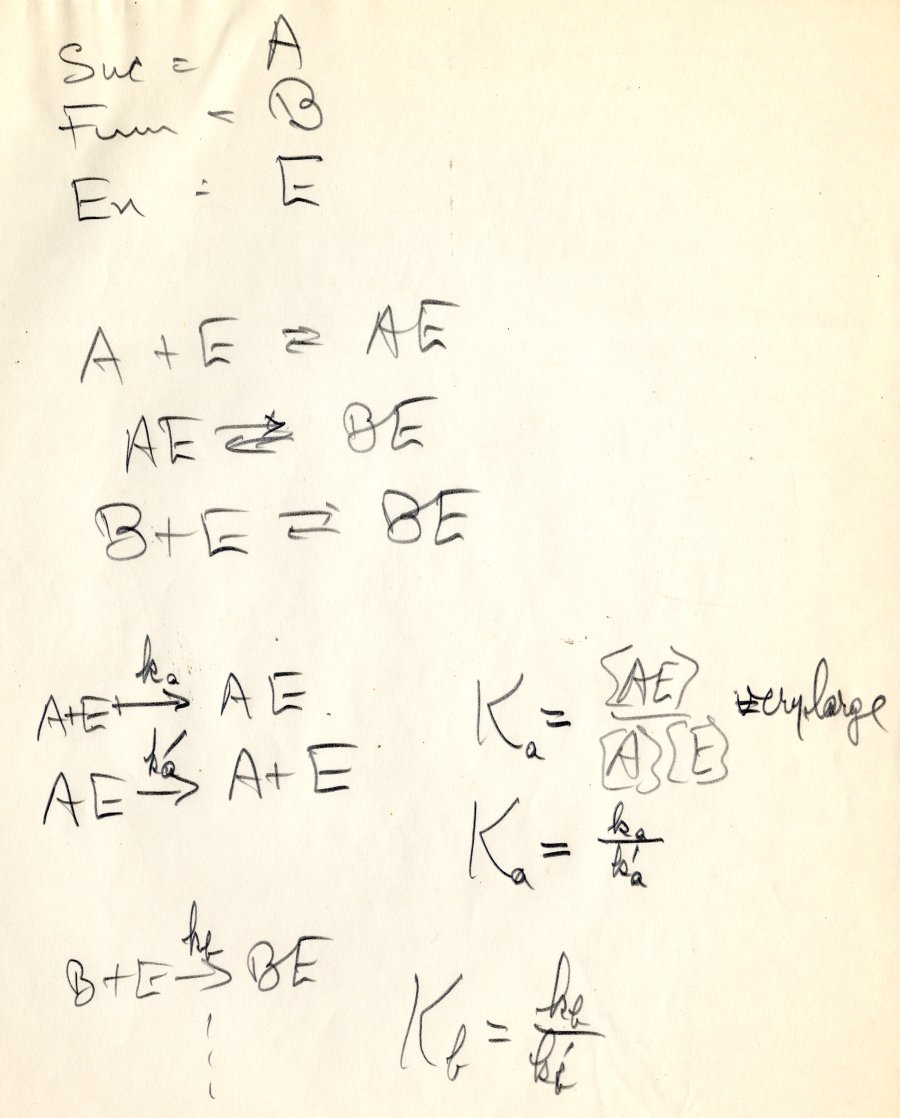 Suc = A
Fum = B
En = E
A + E ⇌ AE
AE ⇌ BE
B + E ⇌ BE
A+E —kₐ→ AE
AE —k'ₐ→ A + E
Kₐ = [AE] / [A][E] very large
Kₐ = kₐ / k'ₐ
B + E —k_b→ BE
K_b = k_b / k'_b